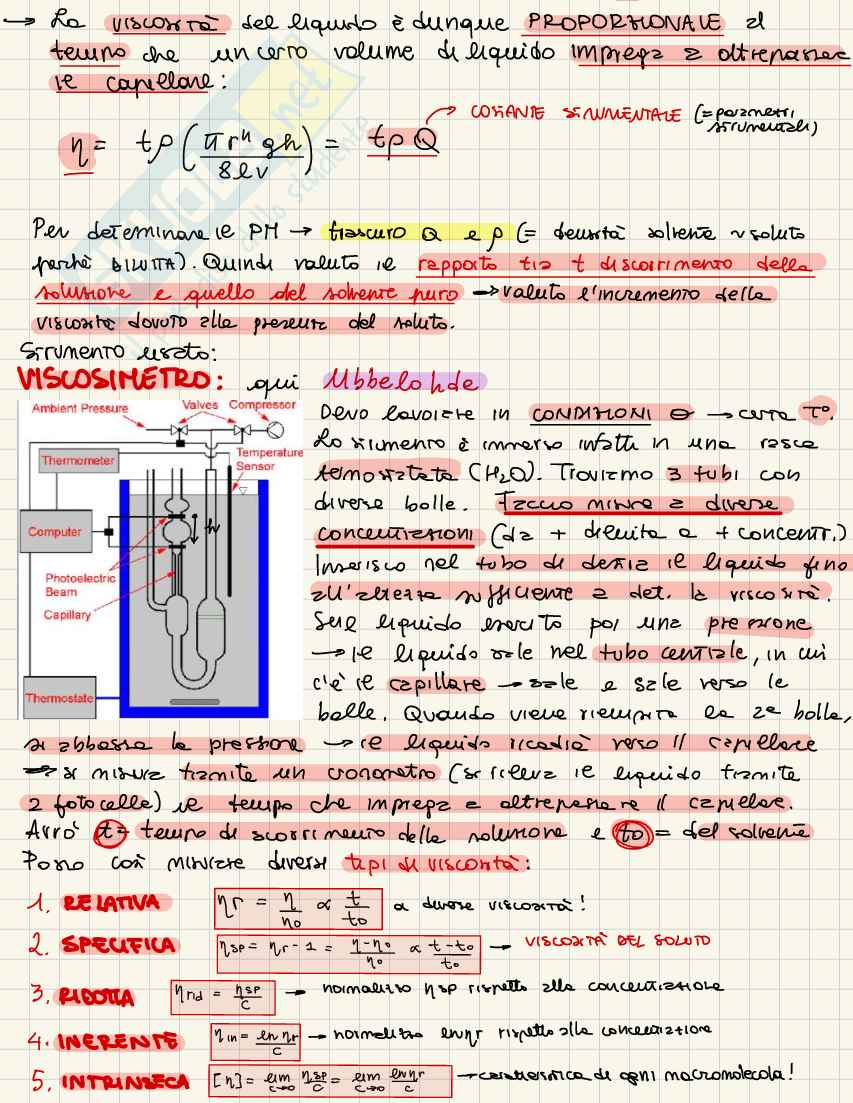 → La viscosità del liquido è dunque PROPORZIONALE al
tempo che un certo volume di liquido impiega a oltrepassare
il capillare:
→ COSTANTE STRUMENTALE (= parametri
strumentali)
η = tρ (πr⁴ gh / 8lv) = tρ Q
Per determinare il PM → trascuro Q e ρ (= densità solvente ~ soluto
perché DILUITA). Quindi valuto il rapporto tra t di scorrimento della
soluzione e quello del solvente puro → valuto l'incremento della
viscosità dovuto alla presenza del soluto.
Strumento usato:
VISCOSIMETRO: qui Ubbelohde
Ambient Pressure Valves Compressor
Thermometer
Temperature
Sensor
Computer
h
Photoelectric
Beam
Capillary
Thermostate
Devo lavorare in CONDIZIONI θ → certa T°.
Lo strumento è immerso infatti in una vasca
termostatata (H₂O). Troviamo 3 tubi con
diverse bolle. Faccio misure a diverse
concentrazioni (da + diluita a + concentr.)
Inserisco nel tubo di destra il liquido fino
all'altezza sufficiente a det. la viscosità.
Sul liquido esercito poi una pressione
→ il liquido sale nel tubo centrale, in cui
c'è il capillare → sale e sale verso le
bolle. Quando viene riempita la 2ª bolla,
si abbassa la pressione → il liquido ricadrà verso il capillare
→ si misura tramite un cronometro (si rileva il liquido tramite
2 fotocellule) il tempo che impiega a oltrepassare il capillare.
Avrò t = tempo di scorrimento della soluzione e t₀ = del solvente
Posso così misurare diversi tipi di viscosità:
1. RELATIVA ηr = η/η₀ ∝ t/t₀ a diverse viscosità!
2. SPECIFICA ηsp = ηr - 1 = η-η₀/η₀ ∝ t-t₀/t₀ → VISCOSITÀ DEL SOLUTO
3. RIDOTTA ηrid = ηsp/C → normalizzo ηsp rispetto alla concentrazione
4. INERENTE ηin = ln ηr/C → normalizzo ln ηr rispetto alla concentrazione
5. INTRINSECA [η] = lim c→0 ηsp/C = lim c→0 ln ηr/C → caratteristica di ogni macromolecola!